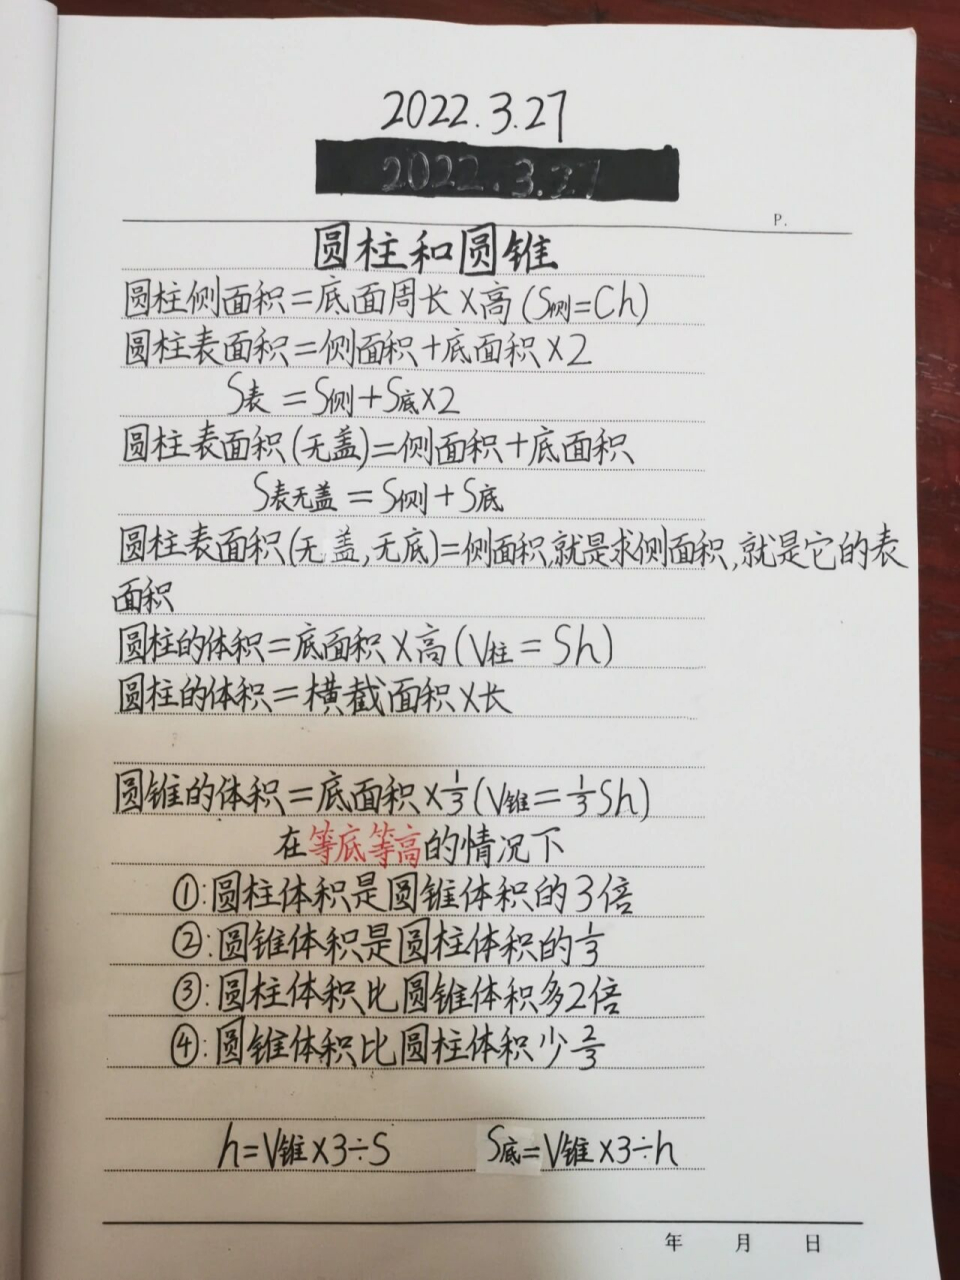 2022.3.27
2022.3.27
P.
圆柱和圆锥
圆柱侧面积=底面周长×高(S侧=Ch)
圆柱表面积=侧面积+底面积×2
S表=S侧+S底×2
圆柱表面积(无盖)=侧面积+底面积
S表无盖=S侧+S底
圆柱表面积(无盖,无底)=侧面积,就是求侧面积,就是它的表
面积
圆柱的体积=底面积×高(V柱=Sh)
圆柱的体积=横截面积×长
圆锥的体积=底面积×1/3(V锥=1/3Sh)
在等底等高的情况下
①:圆柱体积是圆锥体积的3倍
②:圆锥体积是圆柱体积的1/3
③:圆柱体积比圆锥体积多2倍
④:圆锥体积比圆柱体积少2/3
h=V锥×3÷S S底=V锥×3÷h
年 月 日